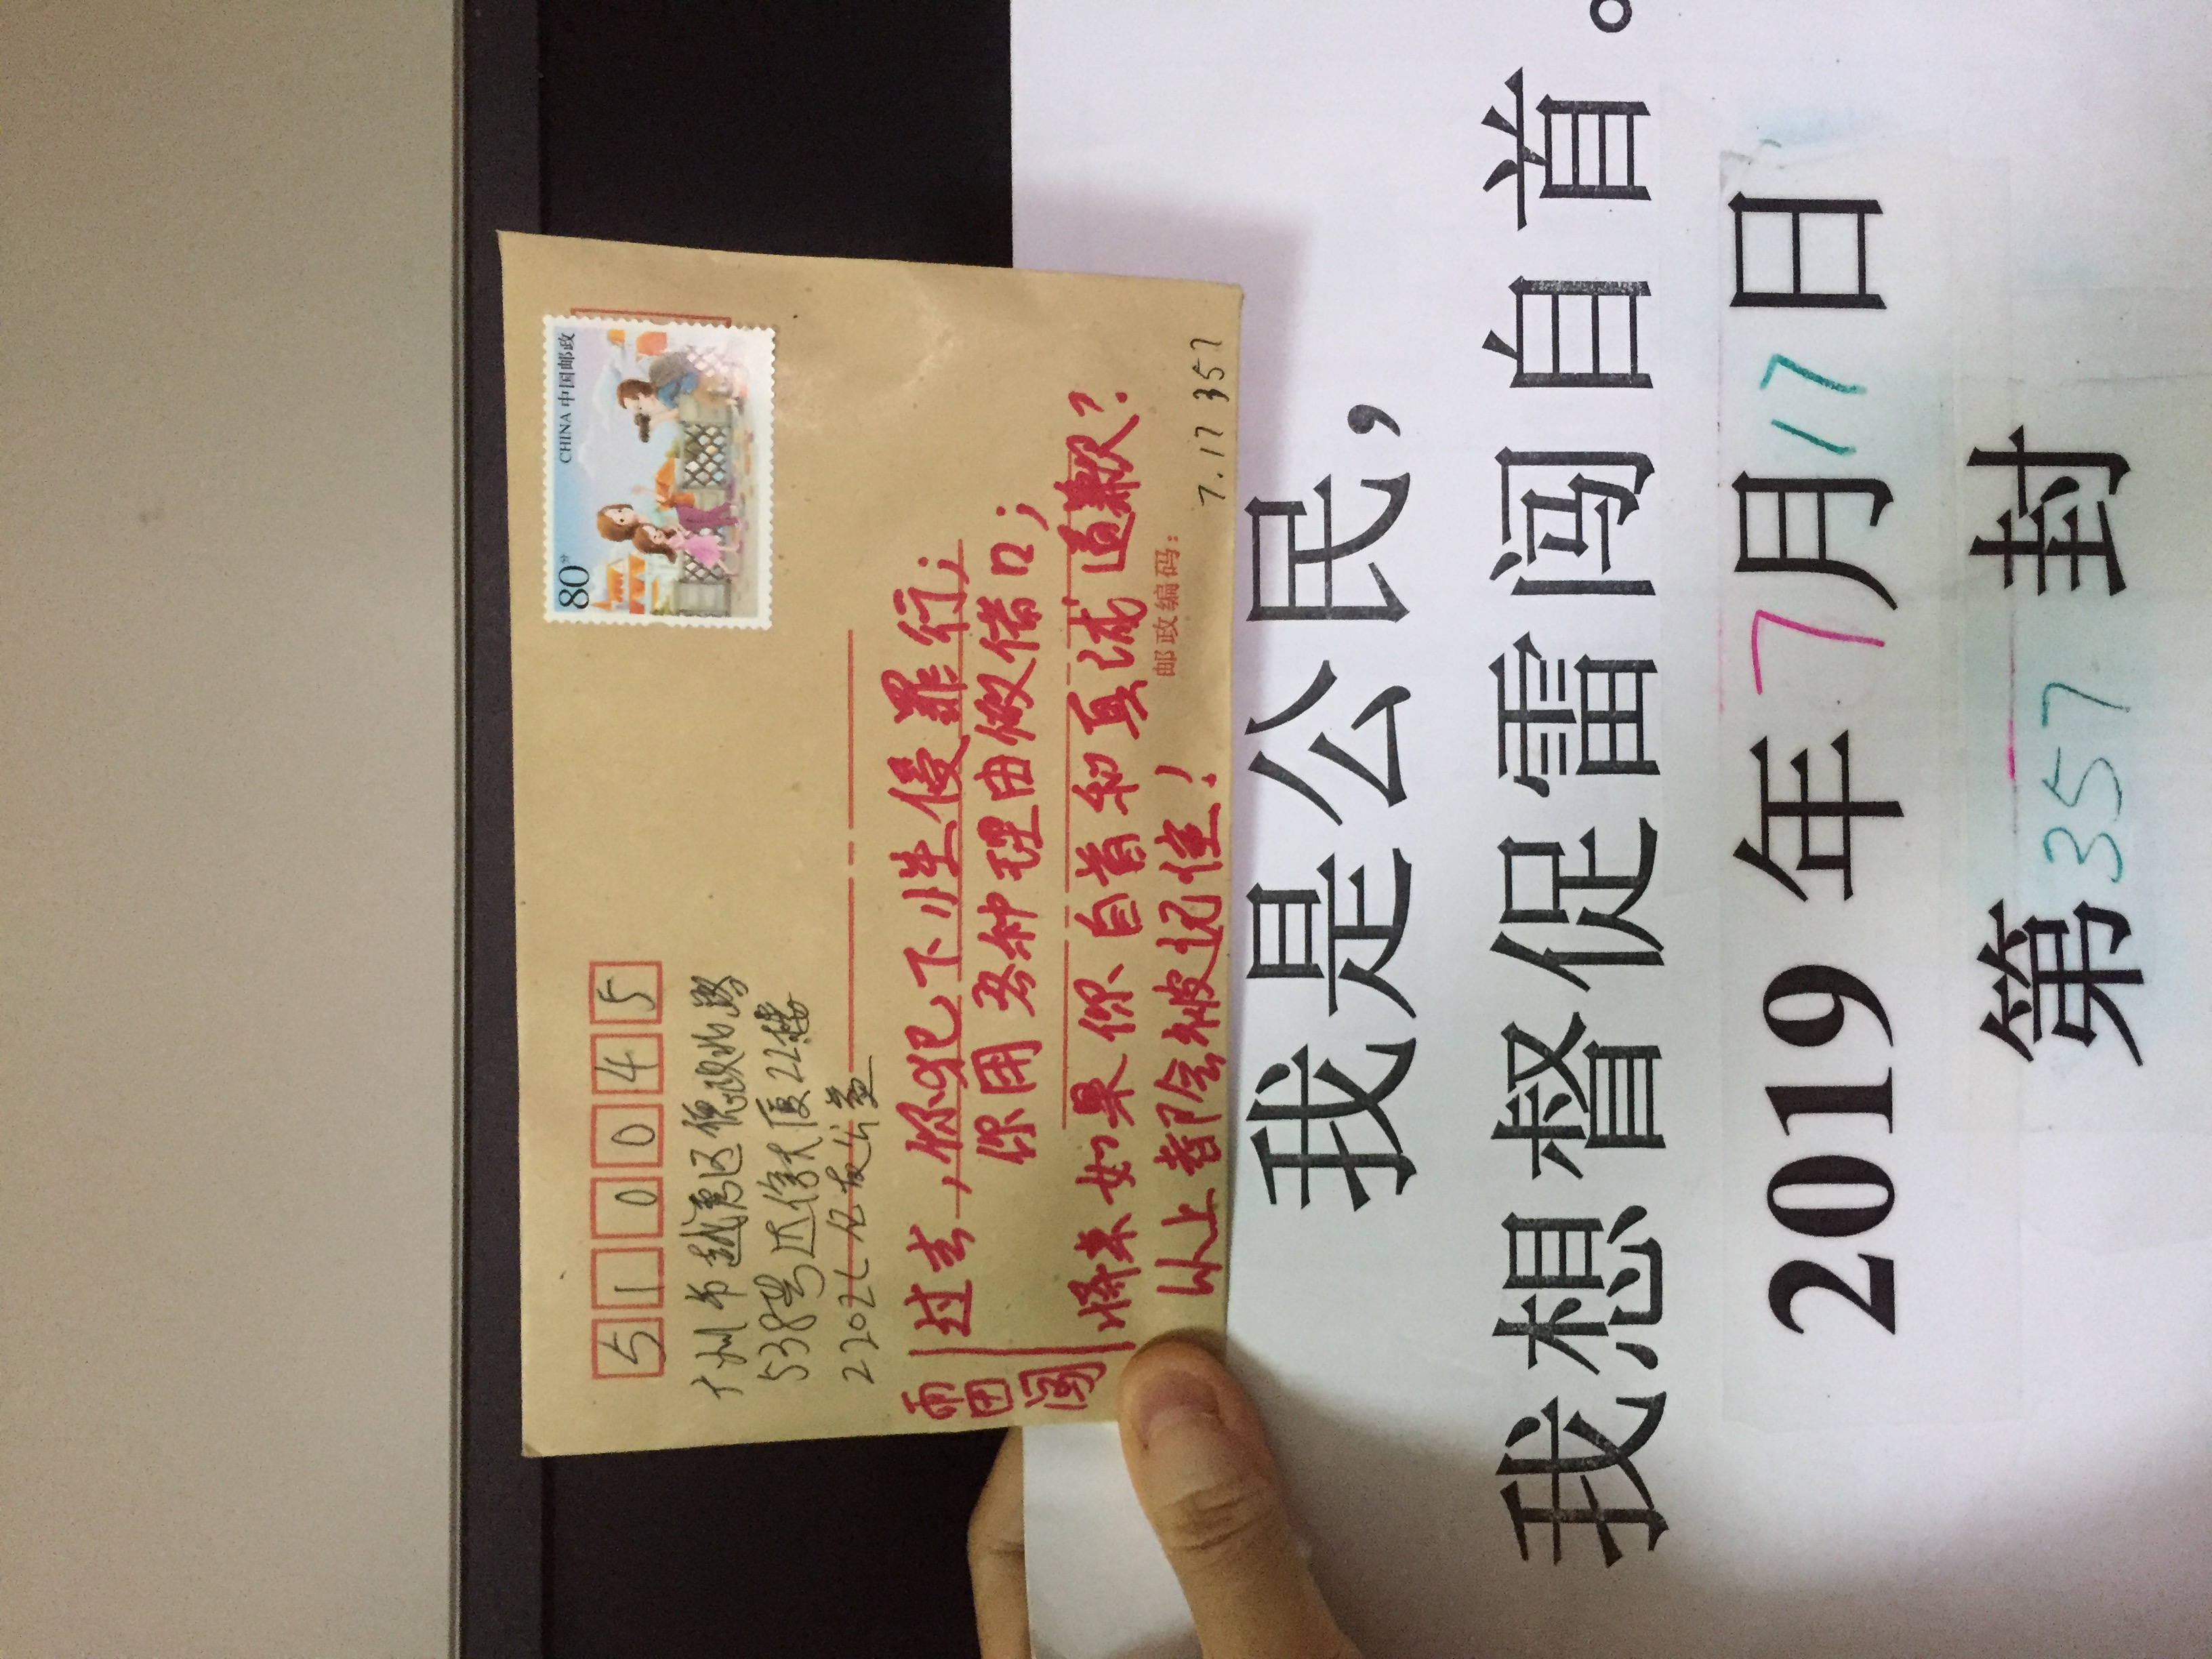 510045
80分
CHINA 中国邮政
广州市越秀区德政北路
538号达信大厦22楼
亿友公益
雷闯
过去,你犯下性侵罪行;
你用各种理由做借口;
将来如果你自首和真诚道歉?
以上都会被记住!
邮政编码:
7.17 357
我是公民,
我想督促雷闯自首。
2019年7月17日
第357封